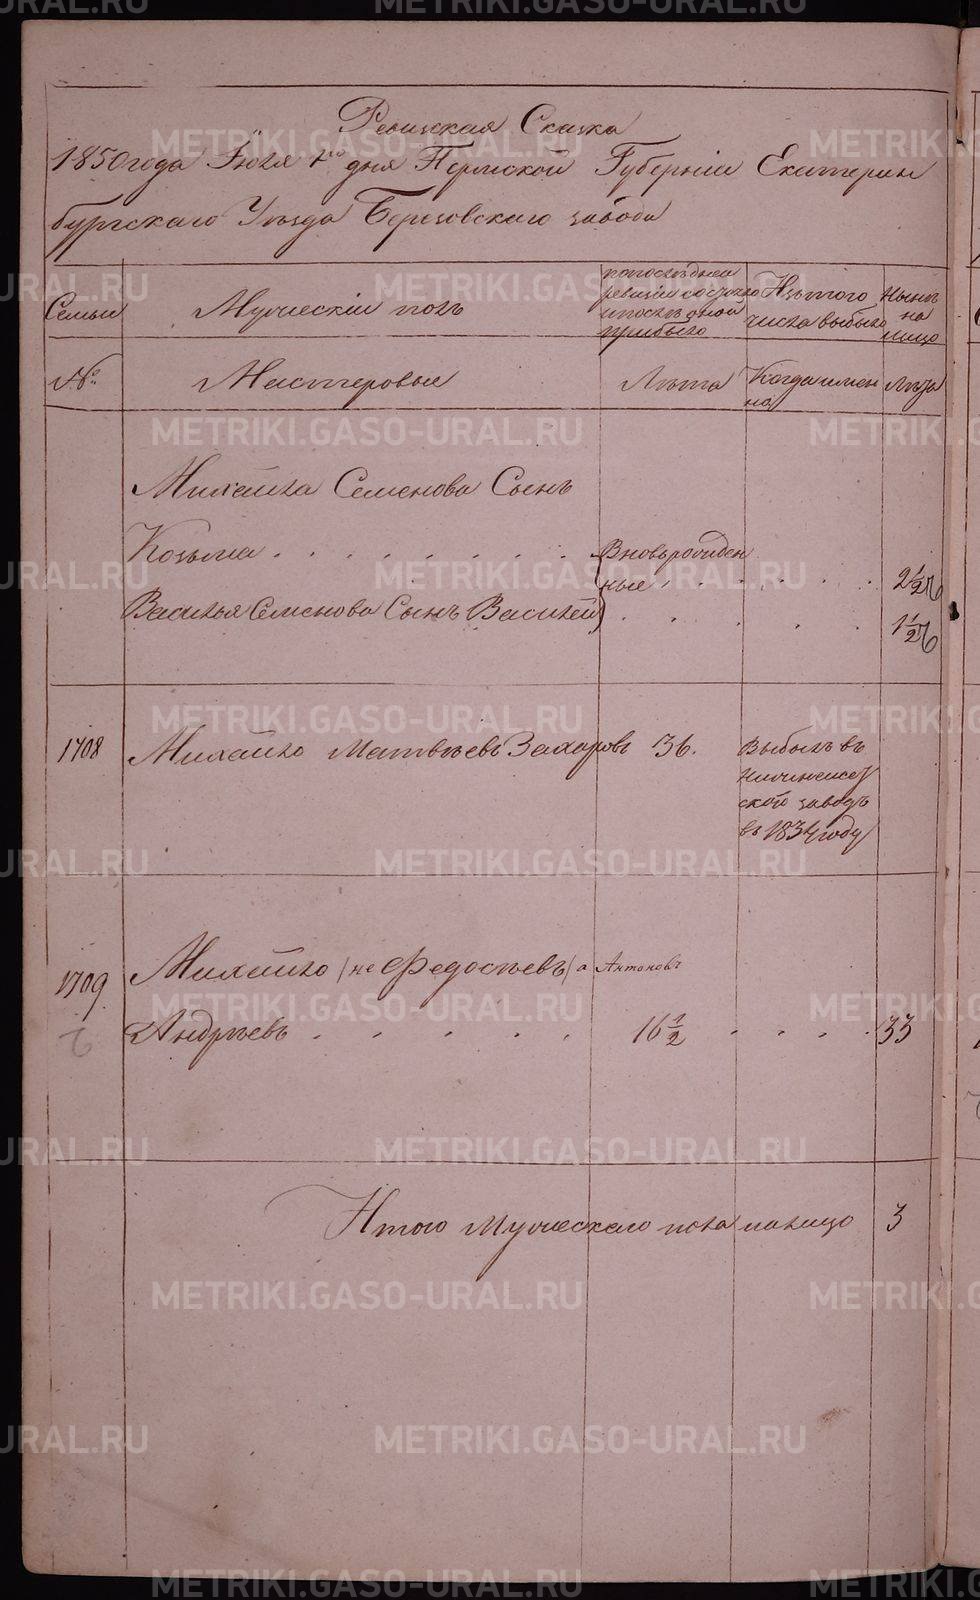 Ревизская Сказка
1850 года Июля 1го дня Пермской Губерніи Екатерин
бургскаго Уѣзда Березовскаго завода
Семьи
Мужескій полъ
по последней
ревизіи состояло
и послѣ оной
прибыло
Изъ того
числа выбыло
Нынѣ
на
лицо
№
Мастеровые
Лѣта
Когда имен
но
Лѣта
Михайла Семенова Сынъ
Козьма
Вновь рожден
ные
2 1/2
Василья Семенова Сынъ Василей
1 1/2
1708
Михайло Матвѣевъ Захаровъ
36.
Выбылъ въ
ской заводъ
въ 1834 году
1709
Михайло (не Федосѣевъ) а Антоновъ
Андрѣевъ
16 1/2
33
Итого мужескаго пола налицо
3
METRIKI.GASO-URAL.RU